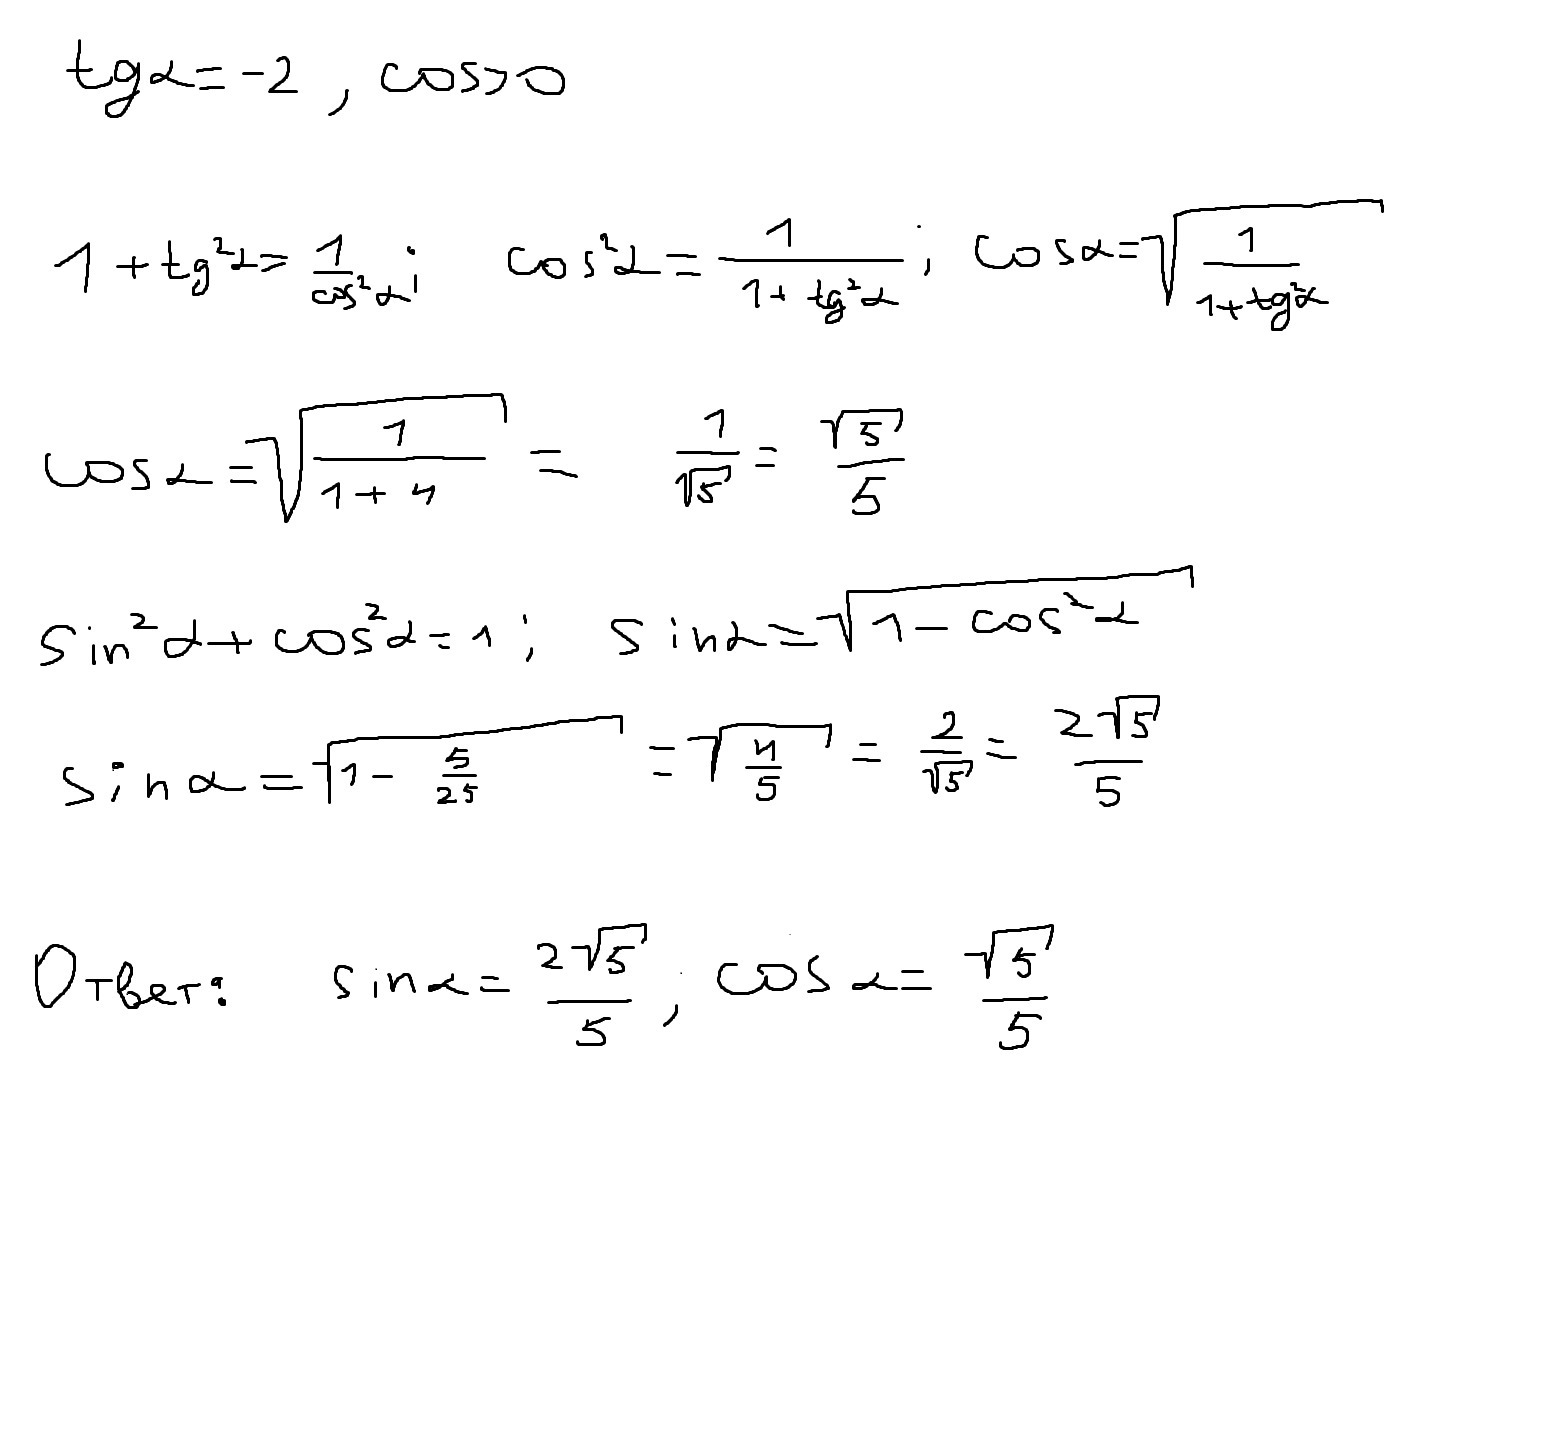 tgα=-2, cos>0
1+tg²α=1/cos²α; cos²α=1/(1+tg²α); cosα=√(1/(1+tg²α))
cosα=√(1/(1+4)) = 1/√5 = √5/5
sin²α+cos²α=1; sinα=√(1-cos²α)
sinα=√(1-5/25) =√(4/5) = 2/√5 = 2√5/5
Ответ: sinα=2√5/5, cosα=√5/5